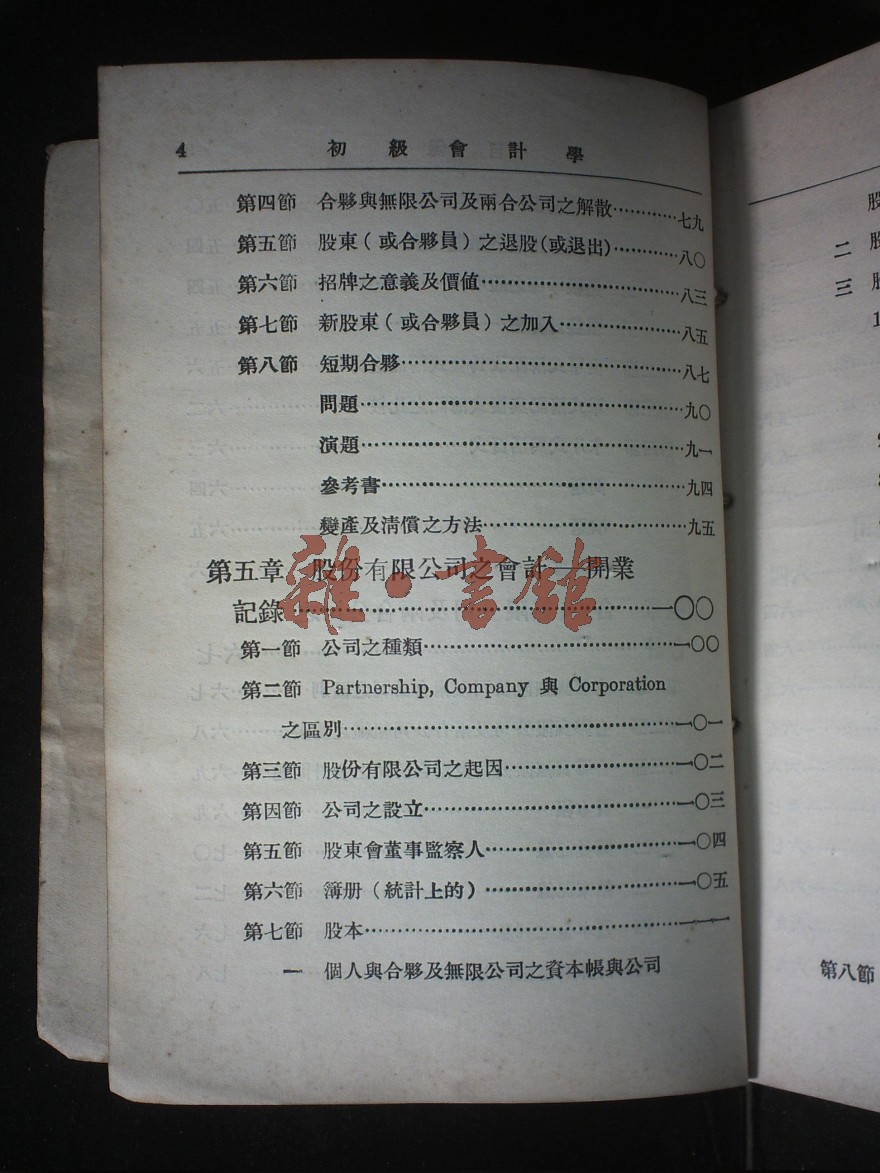 4 初級會計學
第四節 合夥與無限公司及兩合公司之解散…………七九
第五節 股東(或合夥員)之退股(或退出)…………八〇
第六節 招牌之意義及價值…………八三
第七節 新股東(或合夥員)之加入…………八五
第八節 短期合夥…………八七
問題…………九〇
演題…………九一
參考書…………九四
變產及清償之方法…………九五
第五章 股份有限公司之會計—開業
記錄…………一〇〇
雜·書館
第一節 公司之種類…………一〇〇
第二節 Partnership, Company 與 Corporation
之區別…………一〇一
第三節 股份有限公司之起因…………一〇二
第四節 公司之設立…………一〇三
第五節 股東會董事監察人…………一〇四
第六節 簿册(統計上的)…………一〇五
第七節 股本…………一一一
一 個人與合夥及無限公司之資本帳與公司
股
二 股
三
1
第八節